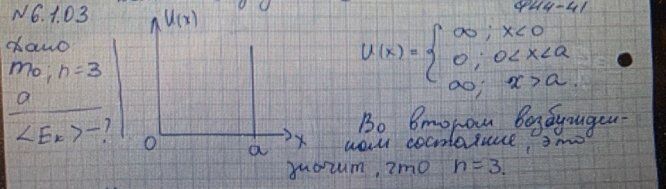 N6.1.03
ФИ4-41
Дано
m₀, n=3
a
<Eк> -?
U(x)
0
a
x
U(x) = { ∞; x<0
0; 0<x<a
∞; x>a.
Во втором возбужден-
ном состояние, это
значит, что n=3.